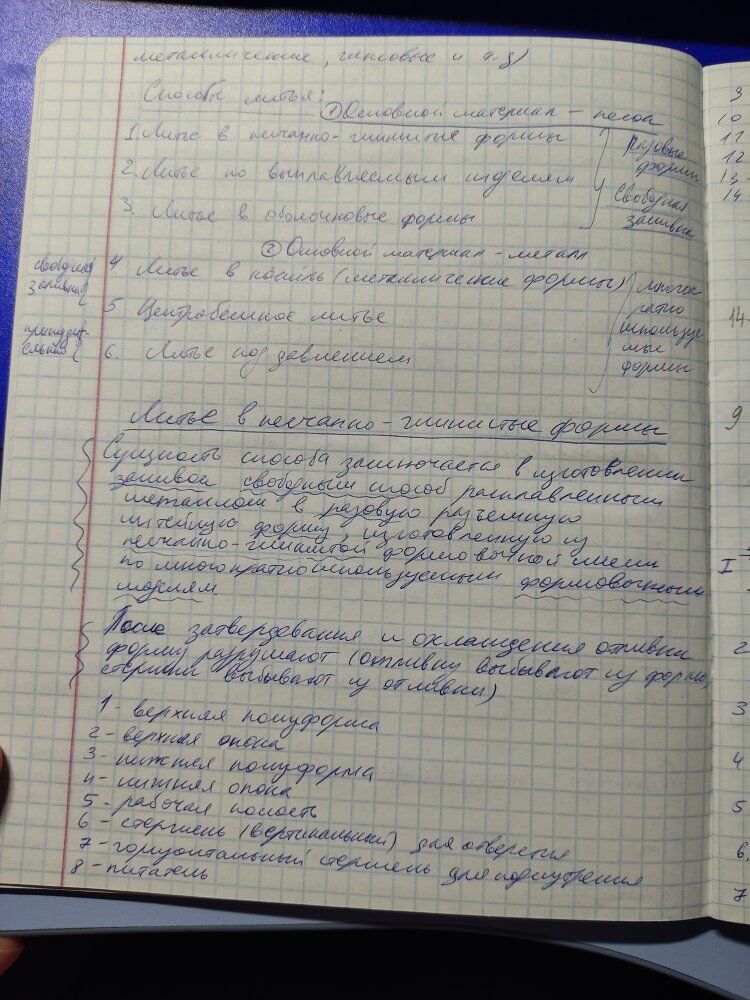 металлические, гипсовые и т.д)
Способы литья:
① Основной материал – песок
1. Литье в песчанно-глинистые формы
2. Литье по выплавляемым изделиям
3. Литье в оболочковые формы
Разовые
формы
Свободная
заливка
② Основной материал - металл
4. Литье в кокиль (металлические формы)
5 Центробежное литье
6. Литье под давлением
свободная
заливка
принудит-
ельный
многок
ратно
используе-
мые
формы
Литье в песчанно-глинистые формы
Сущность способа заключается в изготовлении
заливкой свободным способ расплавленным
металлом в разовую разъемную
литейную форму, изготовленную из
песчанно-глинистой формовочной смеси
по многократно используемым формовочным
моделям
После затвердевания и охлаждения отливки
форму разрушают (отливки выбивают из формы,
стержни выбивают из отливки)
1 - верхняя полуформа
2 - верхняя опока
3 - нижняя полуформа
4 - нижняя опока
5 - рабочая полость
6 - стержень (вертикальный) для отверстия
7 - горизонтальный стержень для поднутрения
8 - питатель
3
10
11
12
13 -
14
14-
9
I
2
3
4
5
6.
7